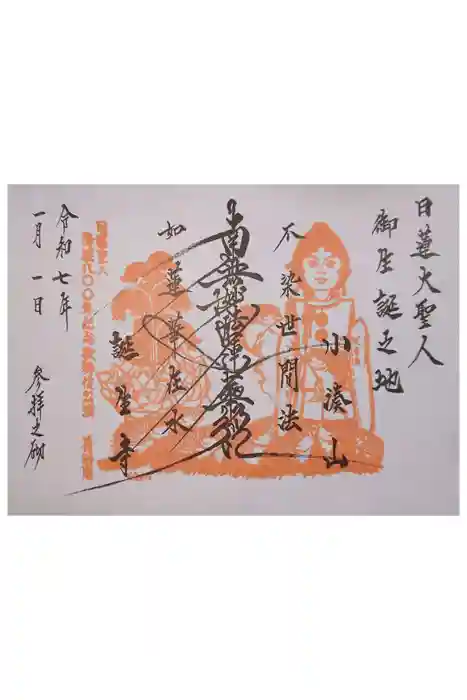 日蓮大聖人
御生誕之地
小湊山
不染世間法
南無妙法蓮華経
如蓮華在水
誕生寺
令和七年
一月一日
参拝之砌